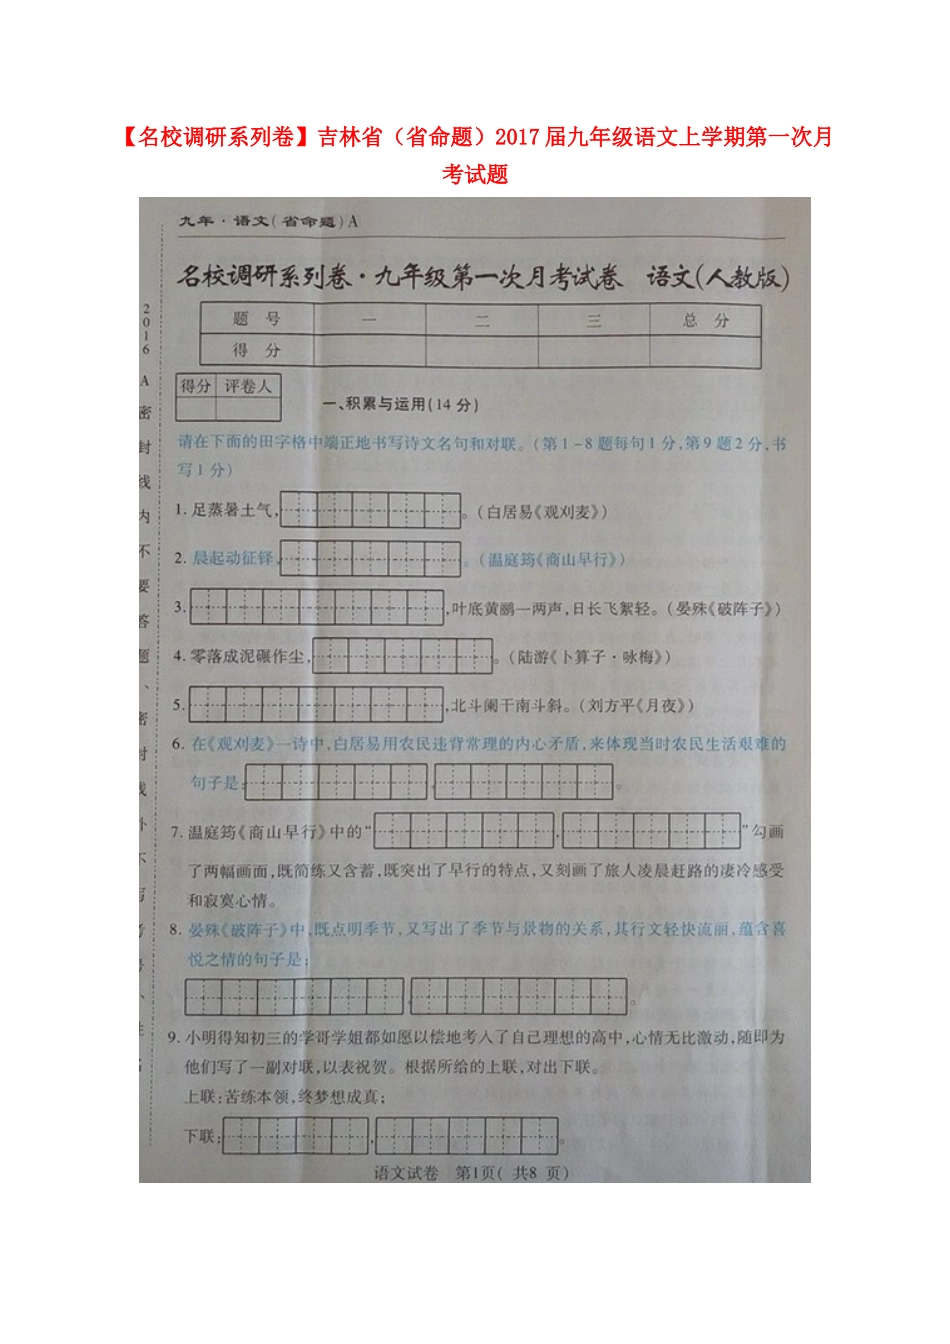 【名校调研系列卷】吉林省（省命题）2017届九年级语文上学期第一次月
考试题
九年·语文(省命题)A
名校调研系列卷·九年级第一次月考试� 语文(人教版)
题 号 一 二 三 总 分
得 分
得分 评卷人
一、积累与运用(14分)
请在下面的田字格中端正地书写诗文名句和对联。(第1-8题每句1分,第9题2分,书
写1分)
1.足蒸暑土气, 。(白居易《观刈麦》)
2.晨起动征铎, 。(温庭筠《商山早行》)
3. ,叶底黄鹂一两声,日长飞絮轻。(晏殊《破阵子》)
4.零落成泥碾作尘, 。(陆游《卜算子·咏梅》)
5. ,北斗阑干南斗斜。(刘方平《月夜》)
6.在《观刈麦》一诗中,白居易用农民违背常理的内心矛盾,来体现当时农民生活艰难的
句子是: , 。
7.温庭筠《商山早行》中的“ , ”勾画
了两幅画面,既简练又含蓄,既突出了早行的特点,又刻画了旅人凌晨赶路的凄冷感受
和寂寞心情。
8.晏殊《破阵子》中,既点明季节,又写出了季节与景物的关系,其行文轻快流丽,蕴含喜
悦之情的句子是:
, 。
9.小明得知初三的学哥学姐都如愿以偿地考入了自己理想的高中,心情无比激动,随即为
他们写了一副对联,以表祝贺。根据所给的上联,对出下联。
上联:苦练本领,终梦想成真;
下联: , 。
语文试卷 第1页( 共8 页)
2016 A 密封线内不要答题、密封线外不写考号、姓名